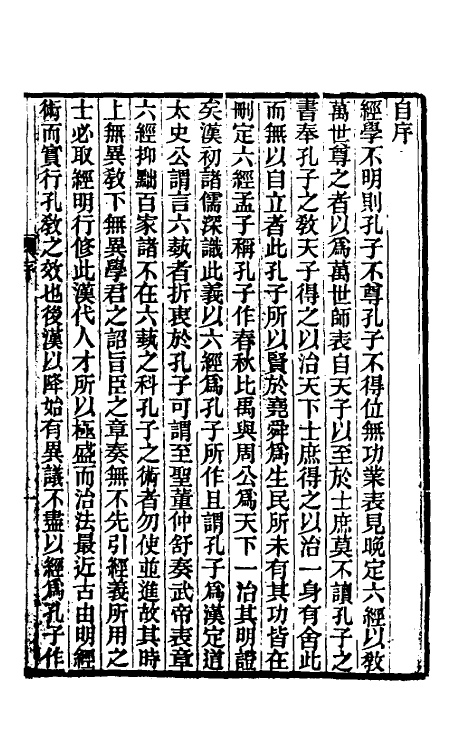 自序
經學不明則孔子不尊孔子不得位無功業表見晚定六經以敎
萬世尊之者以爲萬世師表自天子以至於士庶莫不讀孔子之
書奉孔子之敎天子得之以治天下士庶得之以治一身有舍此
而無以自立者此孔子所以賢於堯舜爲生民所未有其功皆在
刪定六經孟子稱孔子作春秋比禹與周公爲天下一治其明證
矣漢初諸儒深識此義以六經爲孔子所作且謂孔子爲漢定道
太史公謂言六蓺者折衷於孔子可謂至聖董仲舒奏武帝表章
六經抑黜百家諸不在六蓺之科孔子之術者勿使並進故其時
上無異敎下無異學君之詔旨臣之章奏無不先引經義所用之
士必取經明行修此漢代人才所以極盛而治法最近古由明經
術而實行孔敎之效也後漢以降始有異議不盡以經爲孔子作